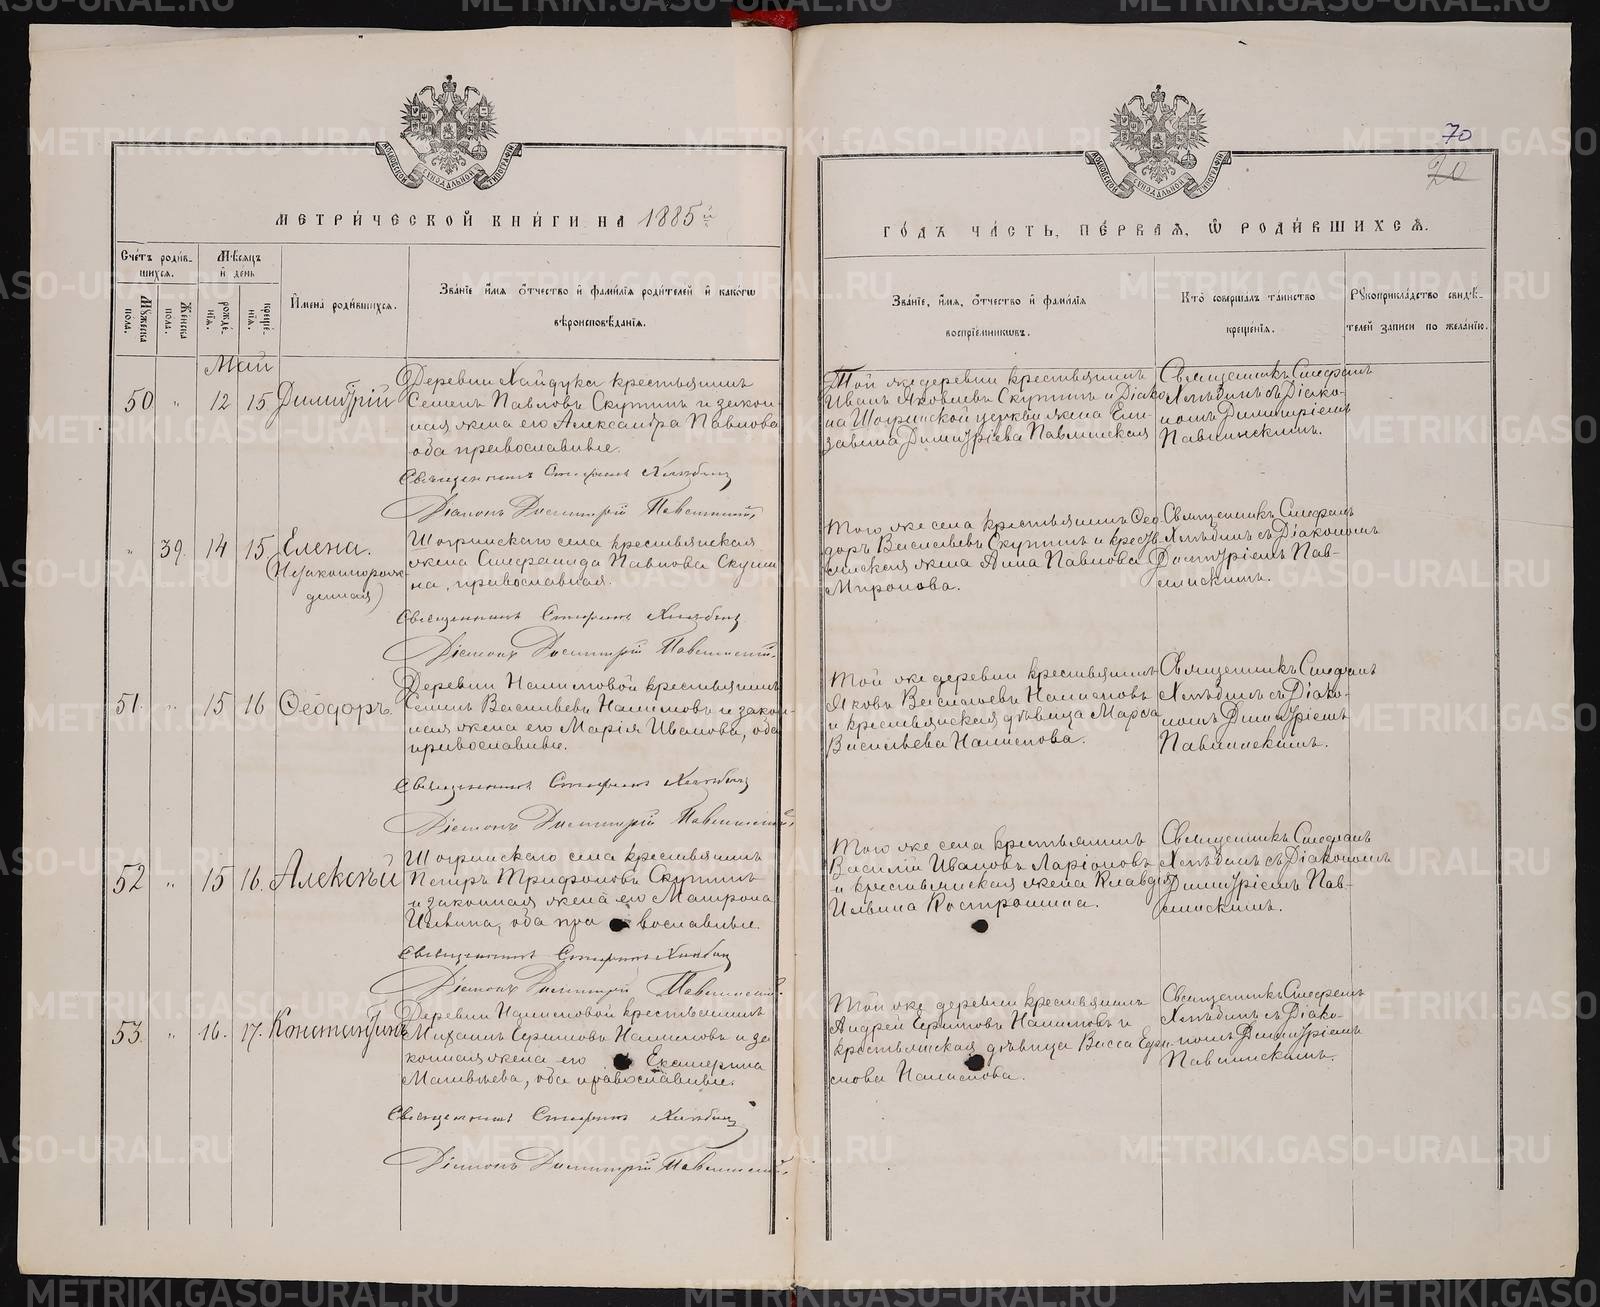 METRIKI.GASO-URAL.RU
70
20
МОСКОВСКОЙ СѴНОДАЛЬНОЙ ТИПОГРАФІИ
МЕТРИ́ЧЕСКОЙ КНИ́ГИ НА 1885й
Сче́тъ роди́в-
шихся.
Мѣ́сяцъ
и҆ де́нь
Му́жеска
пола.
Же́нска
пола.
рожде́-
нїя.
креще́-
нїя.
И҆мена̀ роди́вшихся.
Зва́нїе и҆́мя ѻ҆́тчество и҆ фами́лїя роди́телей и҆ како́гѡ
вѣроисповѣ́данїя.
Май
50 " 12 15 Димитрій
Деревни Хайдука крестьянинъ
Семенъ Павловъ Скутинъ и закон-
ная жена его Александра Павлова
оба православные.
Священникъ Стефанъ Хлѣбинъ
Діаконъ Димитрій Павлинскій
" 39. 14 15. Елена.
(Незаконнорож-
денная)
Шогринскаго села крестьянская
жена Стефанида Павлова Скути-
на, православная.
Священникъ Стефанъ Хлѣбинъ
Діаконъ Димитрій Павлинскій
51. " 15 16 Ѳеодоръ.
Деревни Налимовой крестьянинъ
Семенъ Васильевъ Налимовъ и закон-
ная жена его Марія Иванова, оба
православные.
Священникъ Стефанъ Хлѣбинъ
Діаконъ Димитрій Павлинскій
52 " 15 16. Алексѣй
Шогринскаго села крестьянинъ
Петръ Трифоновъ Скутинъ
и законная жена его Матрона
Ильина, оба православные.
Священникъ Стефанъ Хлѣбинъ
Діаконъ Димитрій Павлинскій
53. " 16. 17. Константинъ
Деревни Налимовой крестьянинъ
Михаилъ Ефимовъ Налимовъ и за
конная жена его Екатерина
Матвѣева, оба православные.
Священникъ Стефанъ Хлѣбинъ
Діаконъ Димитрій Павлинскій
ГО́ДЪ ЧА́СТЬ, ПЕ́РВАЯ, Ѡ҆ РОДИ́ВШИХСЯ.
Зва́нїе, и҆́мя, ѻ҆́тчество и҆ фами́лїя
воспрїе́мникѡвъ.
Кто̀ соверша́лъ та́инство
креще́нїя.
Рꙋкоприкла́дство свидѣ́-
телей записи по жела́нїю.
Той же деревни крестьянинъ
Иванъ Яковлевъ Скутинъ и Діако
на Шогринской церкви жена Ели-
завета Димитріева Павлинская
Священникъ Стефанъ
Хлѣбинъ съ Діако-
номъ Димитріемъ
Павлинскимъ.
Того же села крестьянинъ Ѳео
доръ Васильевъ Скутинъ и кресть
янская жена Анна Павлова
Миронова.
Священникъ Стефанъ
Хлѣбинъ съ Діакономъ
Димитріемъ Пав-
линскимъ.
Той же деревни крестьянинъ
Яковъ Васильевъ Налимовъ
и крестьянская дѣвица Марѳа
Васильева Налимова.
Священникъ Стефанъ
Хлѣбинъ съ Діако-
номъ Димитріемъ
Павлинскимъ.
Того же села крестьянинъ
Василій Ивановъ Ларіоновъ
и крестьянская жена Клавдія
Ильина Костромина.
Священникъ Стефанъ
Хлѣбинъ съ Діакономъ
Димитріемъ Пав-
линскимъ.
Той же деревни крестьянинъ
Андрей Ефимовъ Налимовъ и
крестьянская дѣвица Васса Ефи-
мова Налимова.
Священникъ Стефанъ
Хлѣбинъ съ Діако-
номъ Димитріемъ
Павлинскимъ.